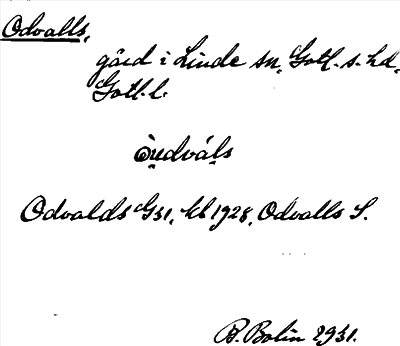 Odvalls,
gård i Linde sn, Gotl. s. hd,
Gotl. l.
Odvalds G31, kb 1928, Odvalls S.
B. Bolin 1931.